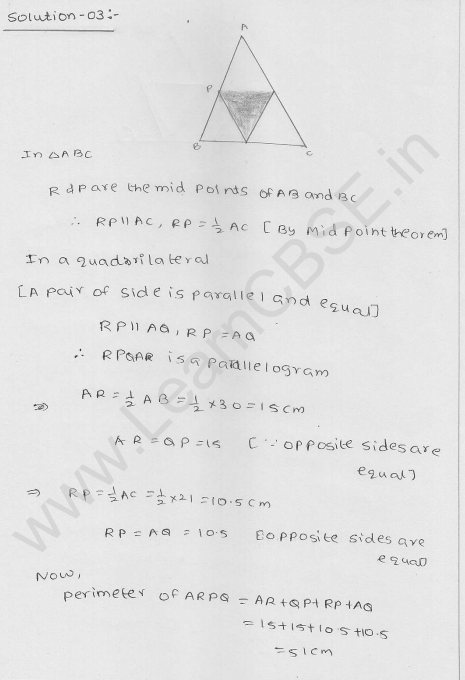 Solution-03:-
A
P
B
C
In △ABC
R & P are the mid points of AB and BC
∴ RP || AC, RP = 1/2 AC [By Midpoint theorem]
In a quadrilateral
[A pair of side is parallel and equal]
RP || AQ, RP = AQ
∴ RPQAR is a parallelogram
⇒ AR = 1/2 AB = 1/2 × 30 = 15 cm
AR = QP = 15 [∵ opposite sides are
equal]
⇒ RP = 1/2 AC = 1/2 × 21 = 10.5 cm
RP = AQ = 10.5 [opposite sides are
equal]
Now,
perimeter of ARPQ = AR + QP + RP + AQ
= 15 + 15 + 10.5 + 10.5
= 51 cm
www.LearnCBSE.in